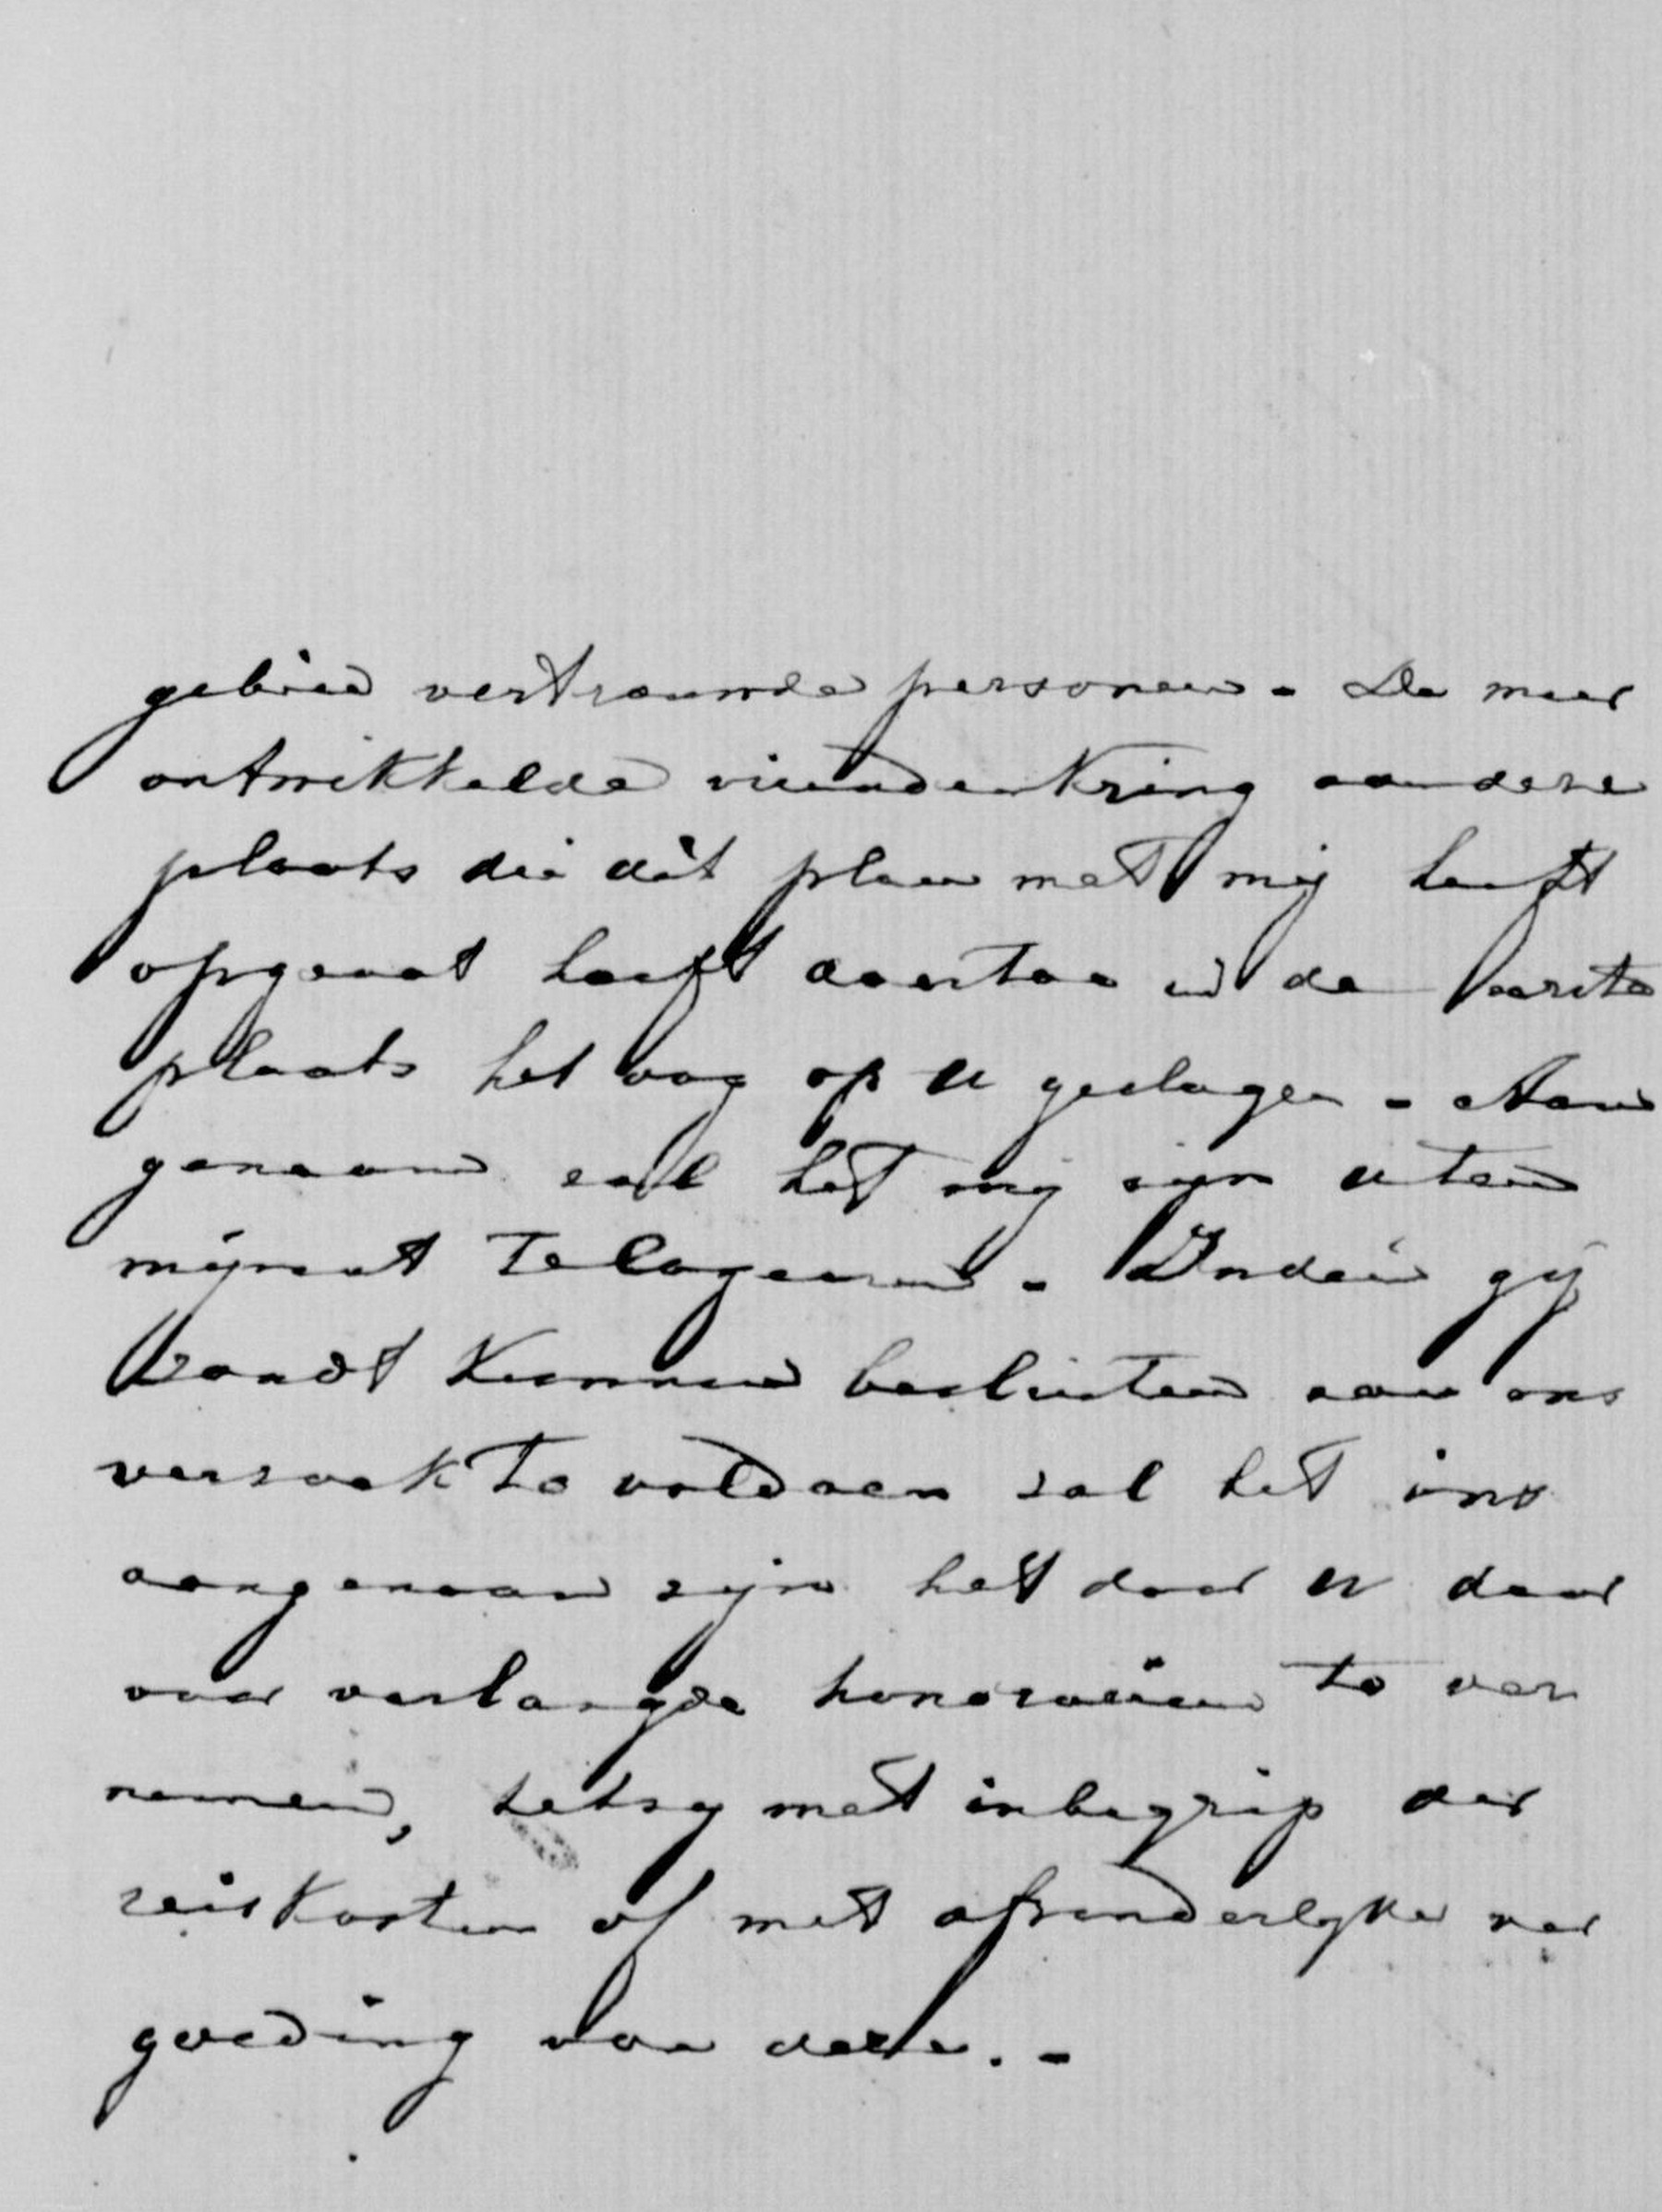 gebied vertrouwde personen - De meer
ontwikkelde vriendenkring aan deze
plaats die dit plan met mij heeft
opgevat heeft daartoe in de eerste
plaats het oog op u geslagen - Aan
genaam zal het mij zijn u ten
mijnent te logeeren - Indien gij
zoudt kunnen besluiten aan ons
verzoek te voldoen zal het ons
aangenaam zijn het door u daar
voor verlangde honorarium te ver
nemen, hetzy met inbegrip der
reiskosten of met afzonderlyke ver
goeding van deze. -